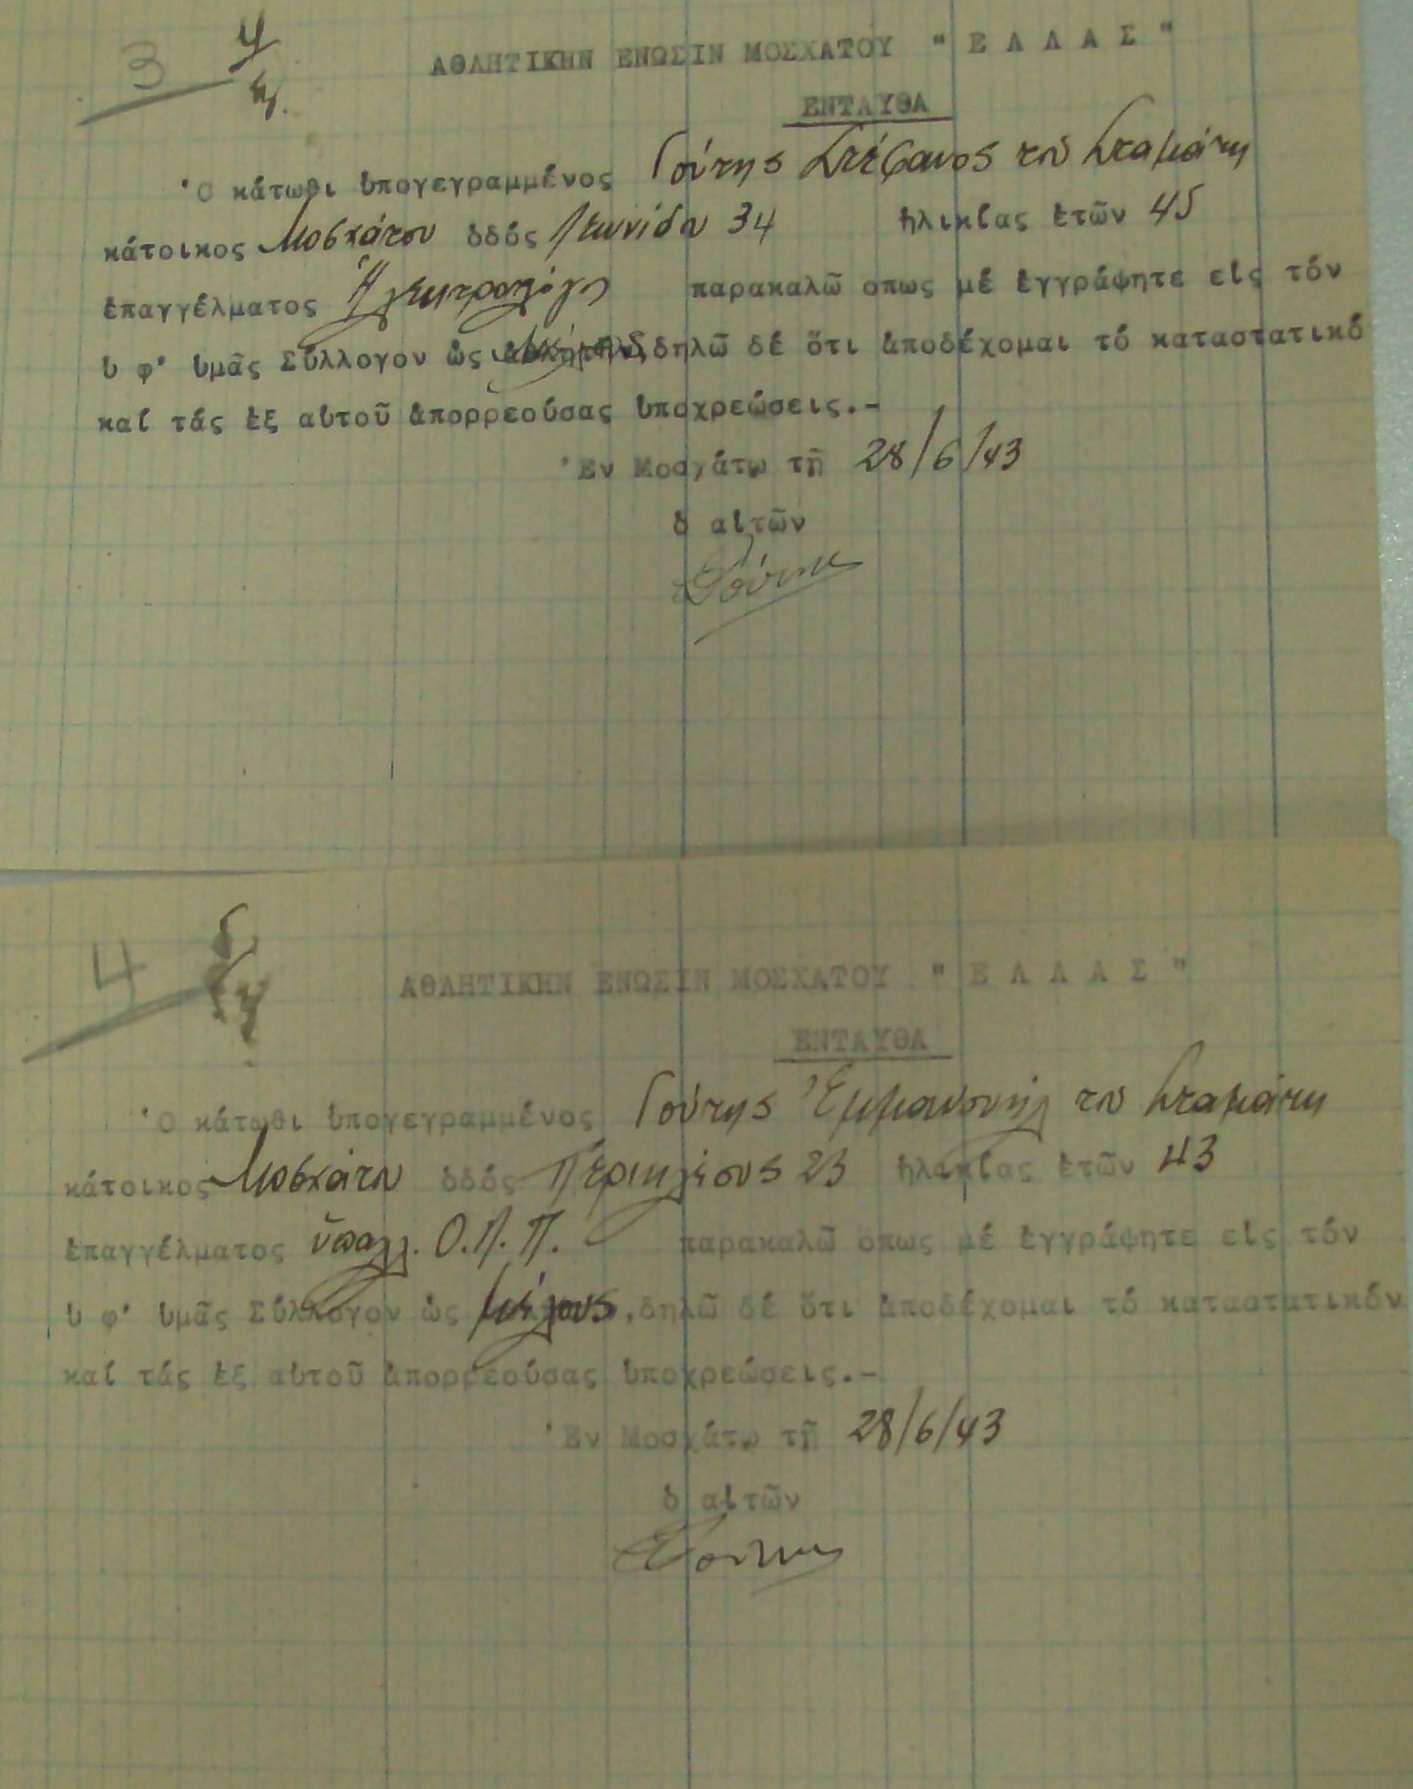 3
ΑΘΛΗΤΙΚΗΝ ΕΝΩΣΙΝ ΜΟΣΧΑΤΟΥ " Ε Λ Λ Α Σ "
ΕΝΤΑΥΘΑ
Ὁ κάτωθι ὑπογεγραμμένος Γούτης Στέφανος τοῦ Σταμάτη
κάτοικος Μοσχάτου ὁδός Λεωνίδου 34 ἡλικίας ἐτῶν 45
ἐπαγγέλματος Ἠλεκτρολόγος παρακαλῶ οπως μέ ἐγγράφητε εἰς τόν
ὑ φ' ὑμᾶς Σύλλογον ὡς δηλῶ δέ ὅτι ἀποδέχομαι τό καταστατικό
καί τάς ἐξ αὐτοῦ ἀπορρεούσας ὑποχρεώσεις.-
Ἐν Μοσχάτῳ τῇ 28/6/43
ὁ αἰτῶν
Γούτης
4
ΑΘΛΗΤΙΚΗΝ ΕΝΩΣΙΝ ΜΟΣΧΑΤΟΥ " Ε Λ Λ Α Σ "
ΕΝΤΑΥΘΑ
Ὁ κάτωθι ὑπογεγραμμένος Γούτης Ἐμμανουήλ του Σταμάτη
κάτοικος Μοσχάτου ὁδός Περικλέους 23 ἡλικίας ἐτῶν 43
ἐπαγγέλματος ὑπαλλ. Ο.Λ.Π. παρακαλῶ οπως μέ ἐγγράφητε εἰς τόν
ὑ φ' ὑμᾶς Σύλλογον ὡς μέλους, δηλῶ δέ ὅτι ἀποδέχομαι τό καταστατικόν
καί τάς ἐξ αὐτοῦ ἀπορρεούσας ὑποχρεώσεις.-
Ἐν Μοσχάτῳ τῇ 28/6/43
ὁ αἰτῶν